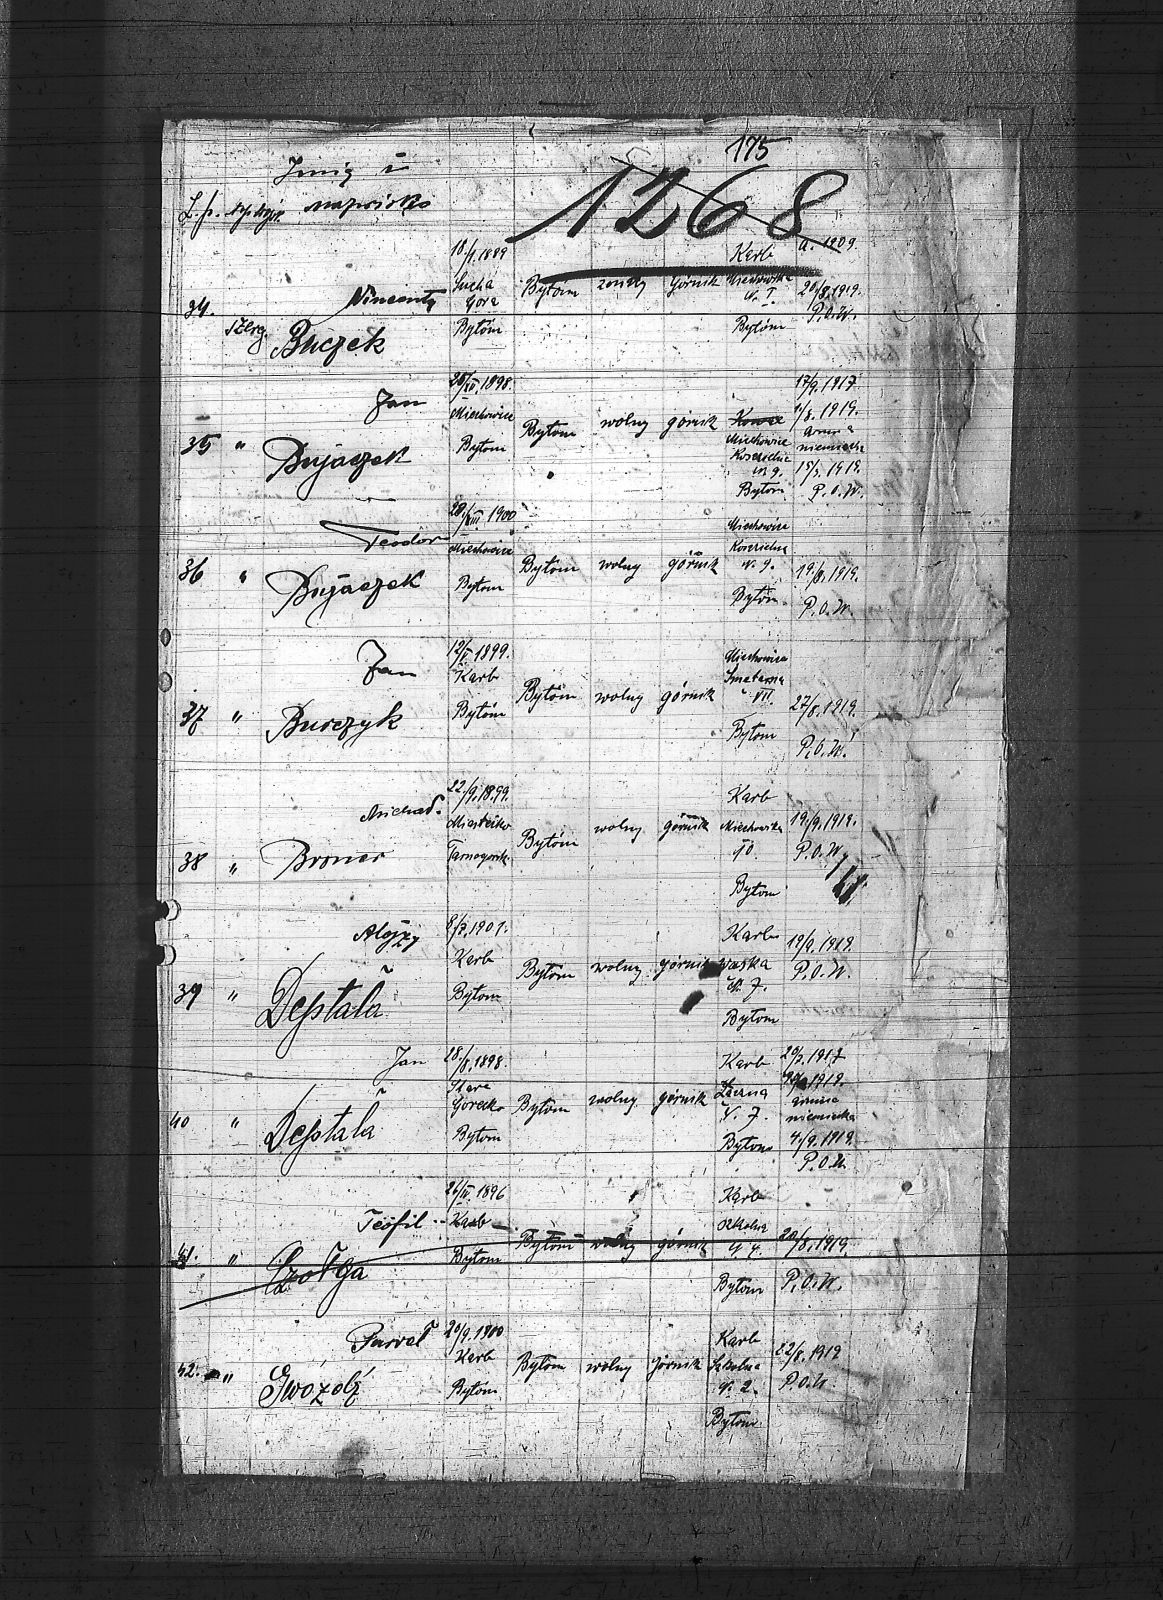 175
1268
Imię i
L.p. nazwisko
34. Szereg. Wincenty Buczek
18/1.1889
Sucha
Góra
Bytom
Bytom żonaty górnik
Karb
Bytom
a. 1909.
20/8.1919.
P.O.W.
35 " Jan Bujaczek
1898.
Miechowice
Bytom
Bytom wolny górnik
Miechowice
Bytom
17/9.1917
1919.
armia
niemiecka
1919.
P.O.W.
36 " Teodor Bujaczek
28/VIII 1900
Miechowice
Bytom
Bytom wolny górnik
Miechowice
N. 9.
Bytom.
19/8.1919.
P.O.W.
37 " Jan Burczyk
12/V 1899.
Karb
Bytom
Bytom wolny górnik
Miechowice
VII.
Bytom
27/8.1919.
P.O.W.
38 " Broner
22/9.1899.
Miasteczko
Bytom wolny górnik
Karb
Bytom
19/9.1919.
P.O.W.
39 " Alojzy Deptała
1901.
Karb
Bytom
Bytom wolny górnik
Karb
wąska
N. 7.
Bytom
19/9.1919.
P.O.W.
40 " Jan Deptała
28/8.1898.
Bytom
Bytom wolny górnik
Karb
N. 7.
Bytom
1917
1919.
armia
niemiecka
4/9.1919.
P.O.W.
41. " Teofil Czołga
1896
Karb
Bytom
Bytom wolny górnik
Karb
szkolna
Bytom
20/8.1919.
P.O.W.
42. " Paweł Gwóźdź
20/9.1900
Karb
Bytom
Bytom wolny górnik
Karb
Szkolna
N. 2.
Bytom
22/8.1919
P.O.W.